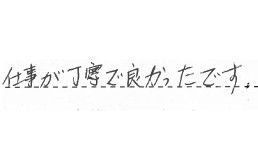 仕事が丁寧で良かったです.